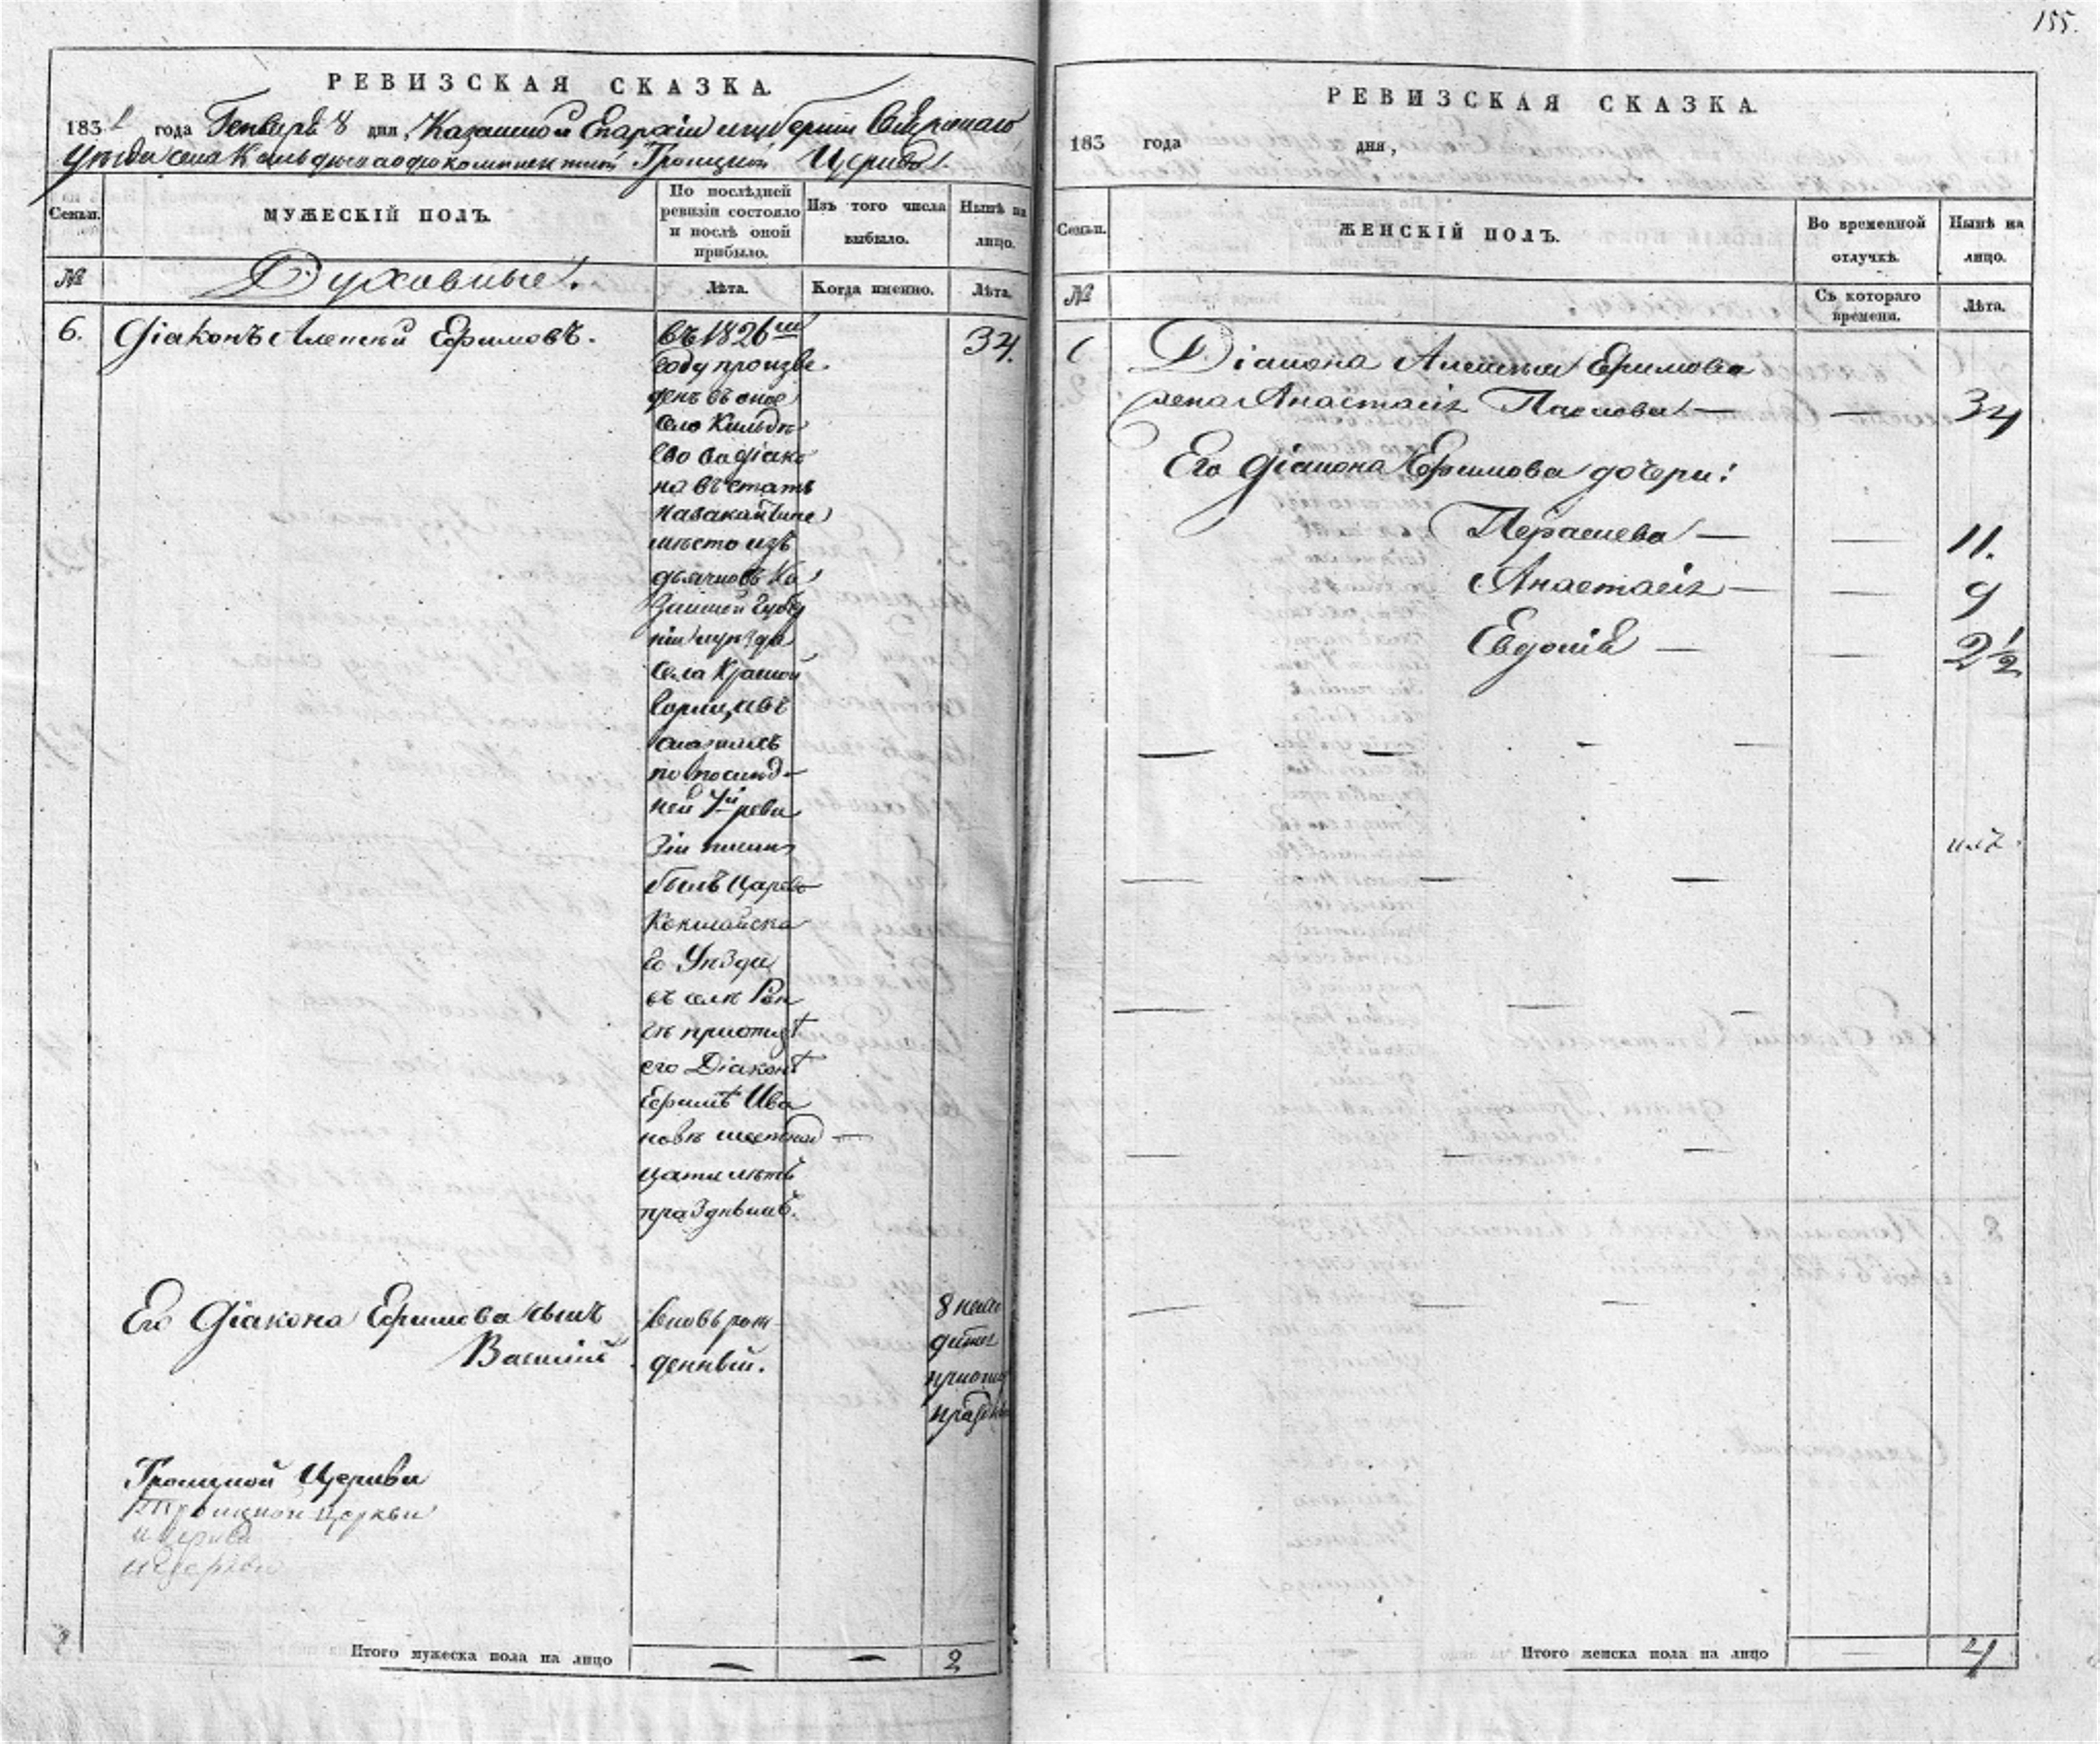 155.
РЕВИЗСКАЯ СКАЗКА.
183 года Генваря 8 дня, Казанской Епархіи и губерніи
уезда села Троицкой Церкви.
Семьи.
МУЖЕСКІЙ ПОЛЪ.
По послѣдней ревизіи состояло и послѣ оной прибыло.
Изъ того числа выбыло.
Нынѣ на лицо.
№
Духовные.
Лѣта.
Когда именно.
Лѣта.
6.
Діаконъ Алексей Ефимовъ.
34.
въ 1826 м
году произве
денъ въ оное
село Кильде
ево въ діако
на въ статъ
на
место изъ
дьячковъ Ка
занской Губер
ніи уезда
села Красной
по послед
ней 7й реви
зіи писанъ
былъ Царево
Кокшайска
го Уезда
въ селе Рон
ге при отце
его Діаконе
Ефиме Ива
нове шестнад
цати летъ
празднымъ.
Его Діакона Ефимова сынъ
Василій
вновь рож
денный.
8 неде
при отце
празд
Троицкой Церкви
Троицкой Церкви
Церкви
Итого мужеска пола на лицо
2
РЕВИЗСКАЯ СКАЗКА.
183 года дня,
Семьи.
ЖЕНСКІЙ ПОЛЪ.
Во временной отлучкѣ.
Нынѣ на лицо.
№
Съ котораго времени.
Лѣта.
Діакона Алексея Ефимова
жена Анастасія Павлова — — 34
Его діакона Ефимова дочери:
Парасчева — — 11.
Анастасія — — 9
Евдокія — — 2½
Итого женска пола на лицо
4